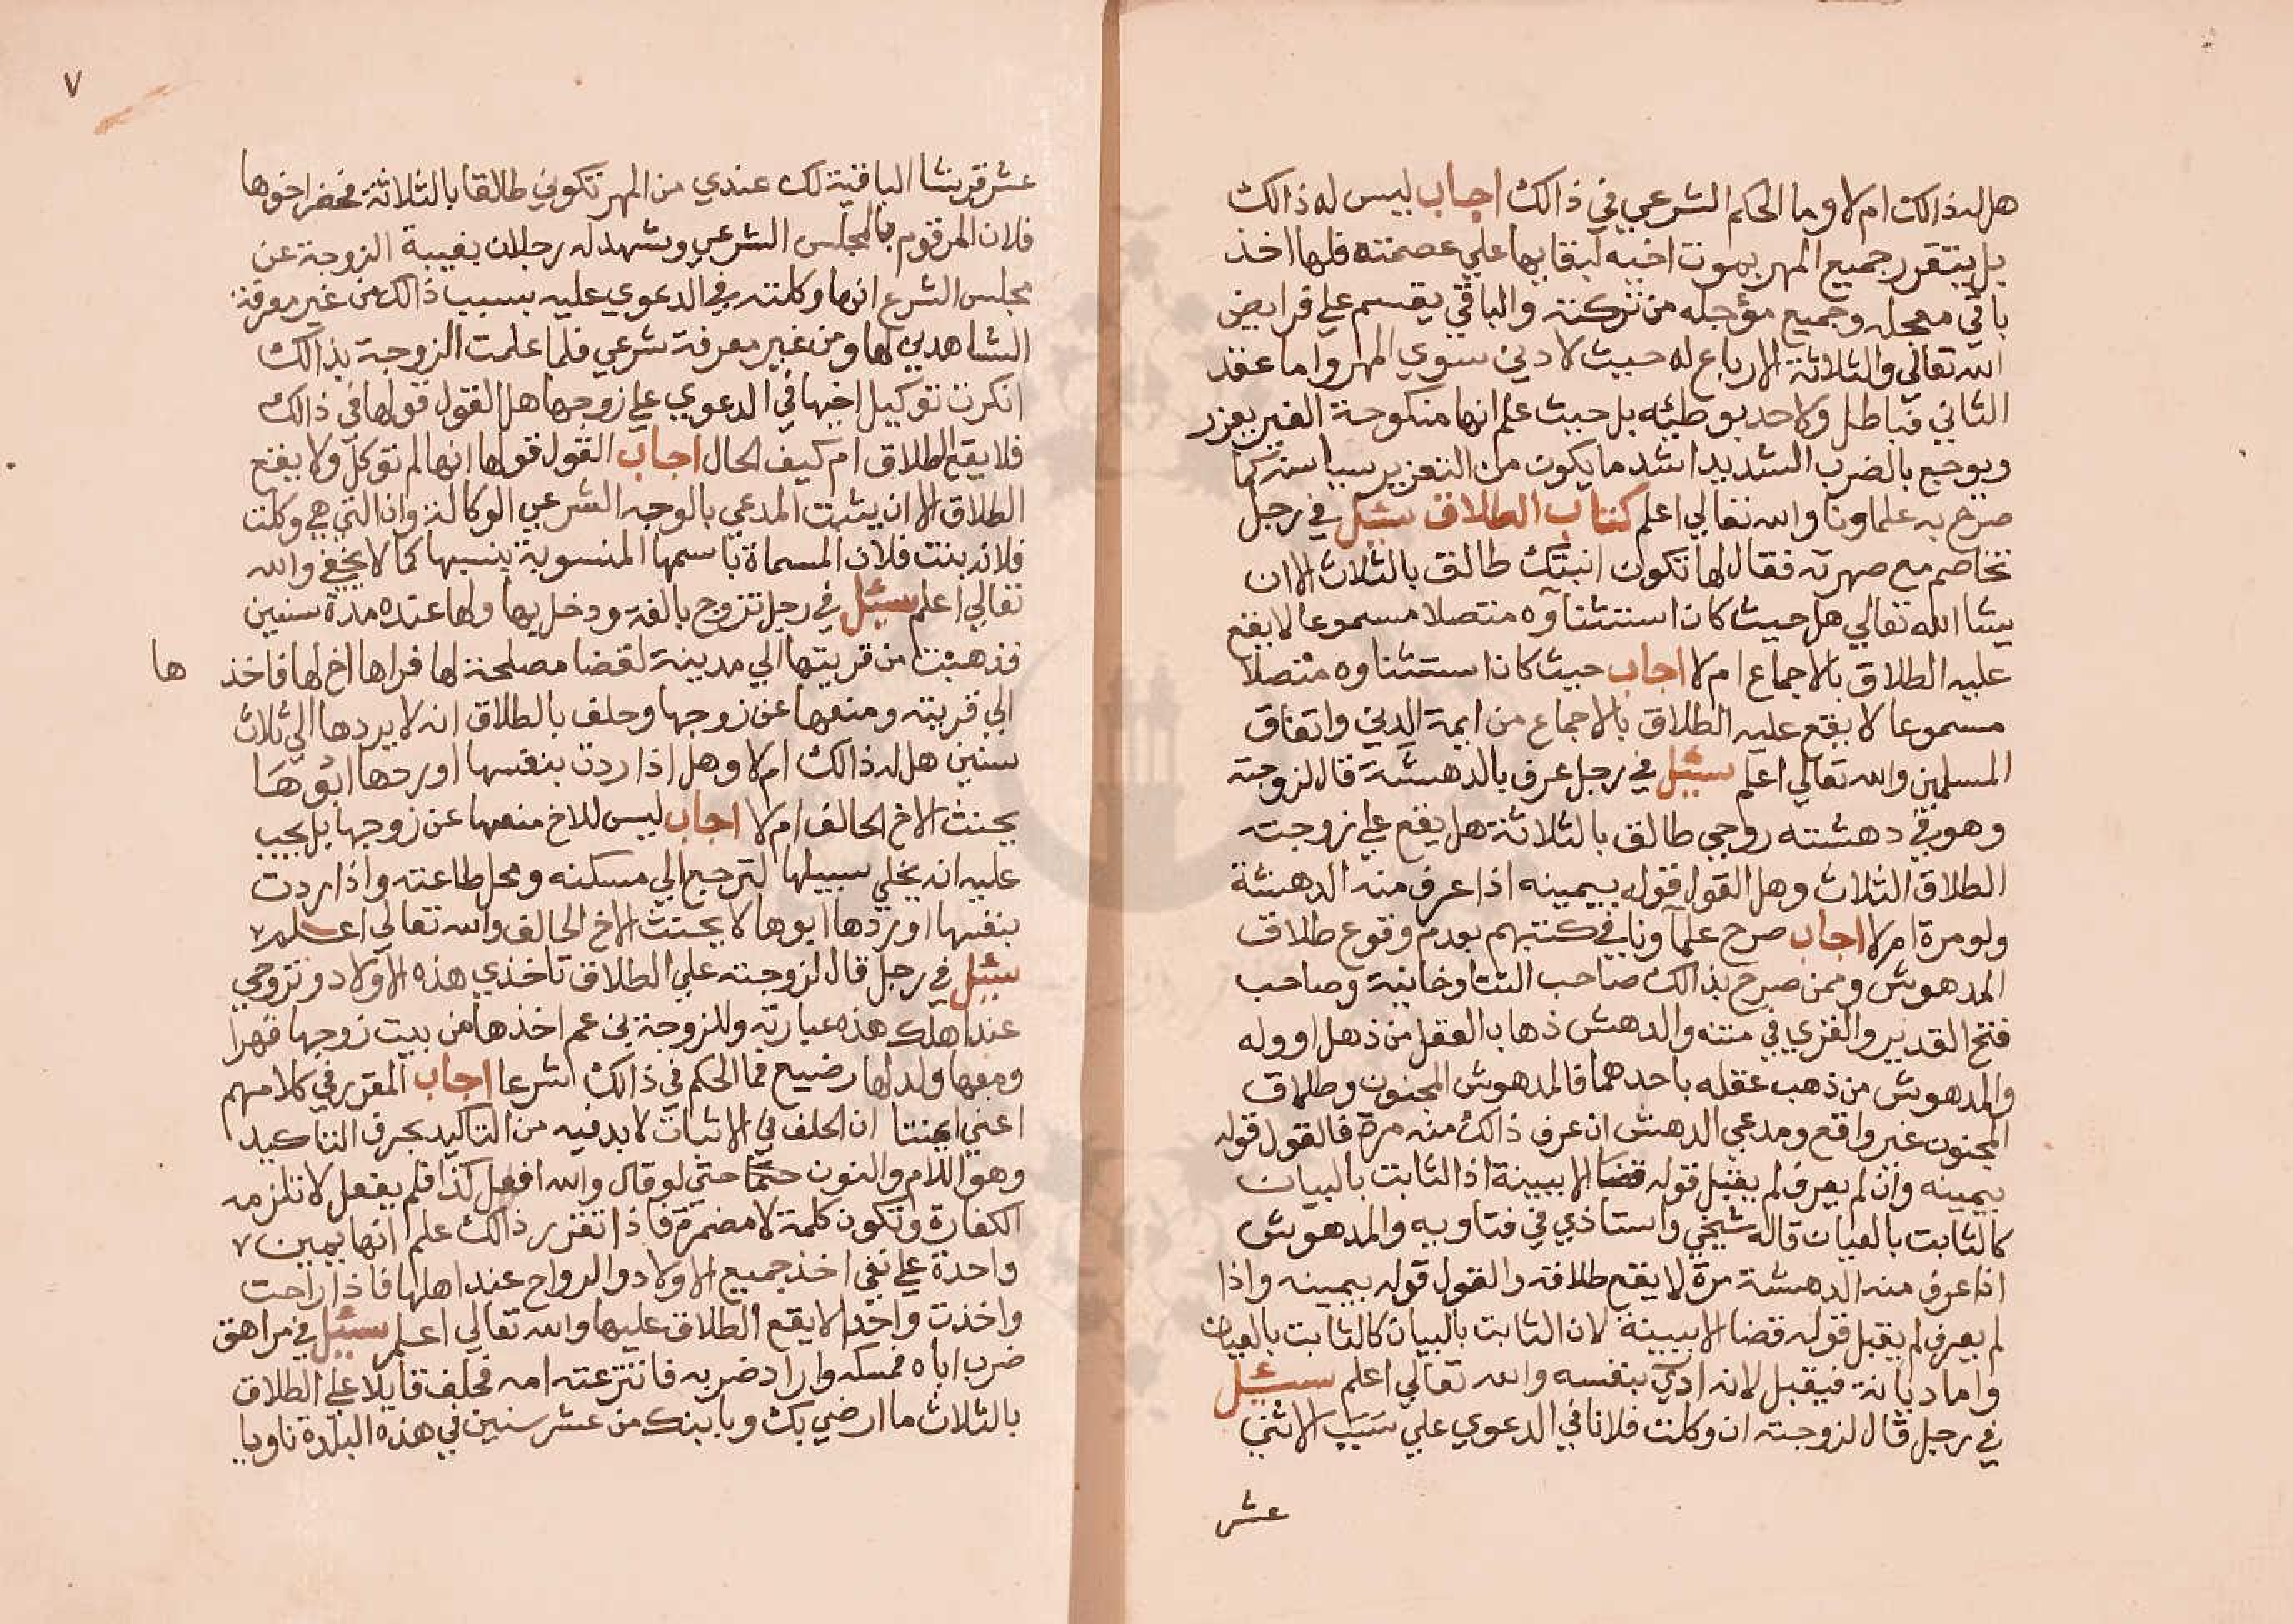 هل له ذالك ام لا وما الحكم الشرعي في ذالك اجاب ليس له ذالك
بل يتقرر جميع المهر بموت اخيه لبقايها علي عصمته فلها اخذ
باقي معجله وجميع مؤجله من تركته والباقي يقسم علي فرايض
الله تعالي والثلاثة الارباع له حيث لا دين سوي المهر واما عقد
الثاني فباطل ولاحد بوطئه بل حيث علم انها منكوحة الغير يعزر
ويوجع بالضرب الشديد اشد ما يكون من التعزير سياسة كما
صرح به علماونا والله تعالي اعلم كتاب الطلاق سئل في رجل
تخاصم مع صهرته فقال لها تكون ابنتك طالق بالثلاث الا ان
يشا الله تعالي هل حيث كان استثناآوه متصلا مسموعا لا يقع
عليه الطلاق بالاجماع ام لا اجاب حيث كان استثناوه متصلا
مسموعا لا يقع عليه الطلاق بالاجماع من ايمة الدين واتفاق
المسلمين والله تعالي اعلم سئل في رجل عرف بالدهشة قال لزوجته
وهو في دهشته روحي طالق بالثلاثة هل يقع علي زوجته
الطلاق الثلاث وهل القول قوله بيمينه اذا عرف منه الدهشة
ولو مرة ام لا اجاب صرح علمآونا في كتبهم بعدم وقوع طلاق
المدهوش وممن صرح بذالك صاحب التتاوخانية وصاحب
فتح القدير والغزي في متنه والدهش ذهاب العقل من ذهل او وله
والمدهوش من ذهب عقله باحدهما فالمدهوش المجنون وطلاق
المجنون غير واقع ومدعي الدهش ان عرف ذالك منه مرة فالقول قوله
بيمينه وان لم يعرف لم يقبل قوله قضا الا ببينة اذ الثابت بالبيان
كالثابت بالعيان قاله شيخي واستاذي في فتاويه والمدهوش
اذا عرف منه الدهشة مرة لا يقع طلاقه والقول قوله بيمينه واذا
لم يعرف لم يقبل قوله قضا الا ببينة لان الثابت بالبيان كالثابت بالعيان
واما ديانة فيقبل لانه ادري بنفسه والله تعالي اعلم سئل
في رجل قال لزوجته ان وكلت فلانا في الدعوي علي سبب الاثني
عشر
٧
عشر قرشا الباقية لك عندي من المهر تكوني طالقا بالثلاثة فحضر اخوها
فلان المرقوم بالمجلس الشرعي وشهد له رجلان بغيبة الزوجة عن
مجلس الشرع انها وكلته في الدعوي عليه بسبب ذالك من غير معرفة
الشاهدين لها ومن غير معرفة شرعي فلما علمت الزوجة بذالك
انكرت توكيل اخيها في الدعوي علي زوجها هل القول قولها في ذالك
فلا يقع الطلاق ام كيف الحال اجاب القول قولها انها لم توكل ولا يقع
الطلاق الا ان يثبت المدعي بالوجه الشرعي الوكالة وان التي هي وكلت
فلانه بنت فلان المسماة باسمها المنسوبة بنسبها كما لا يخفي والله
تعالي اعلم سئل في رجل تزوج بالغة ودخل بها ولها عنده مدة سنين
فذهبت من قريتها الي مدينة لقضا مصلحة لها فراها اخ لها فاخذ ها
الي قريته ومنعها عن زوجها وحلف بالطلاق انه لا يردها الي ثلاث
سنين هل له ذالك ام لا وهل اذا ردت بنفسها او ردها ابوها
يحنث الاخ الحالف ام لا اجاب ليس للاخ منعها عن زوجها بل يجب
عليه انه يخلي سبيلها لترجع الي مسكنه ومحل طاعته واذا ردت
بنفسها او ردها ابوها لا يحنث الاخ الحالف والله تعالي اعلم
سئل في رجل قال لزوجته علي الطلاق تاخذي هذه الاولاد وتروحي
عند اهلك هذه عبارته وللزوجة بني عم اخذها من بيت زوجها قهرا
ومعها ولد لها رضيع فما الحكم في ذالك شرعا اجاب المقرر في كلامهم
اعني ايمتنا ان الحلف في الاثبات لا بد فيه من التاكيد بحرف التاكيد
وهو اللام والنون حتما حتي لو قال والله افعل كذا فلم يفعل لا تلزمه
الكفارة وتكون كلمة لا مضمرة فاذا تقرر ذالك علم انها يمين
واحدة علي نفي اخذ جميع الاولاد والرواح عند اهلها فاذا راحت
واخذت واحدا لا يقع الطلاق عليها والله تعالي اعلم سئل في مراهق
ضرب اباه فمسكه واراد ضربه فانتزعته امه فحلف قايلا علي الطلاق
بالثلاث ما ارضي بك وبابنك من عشر سنين في هذه البلدة ناويا